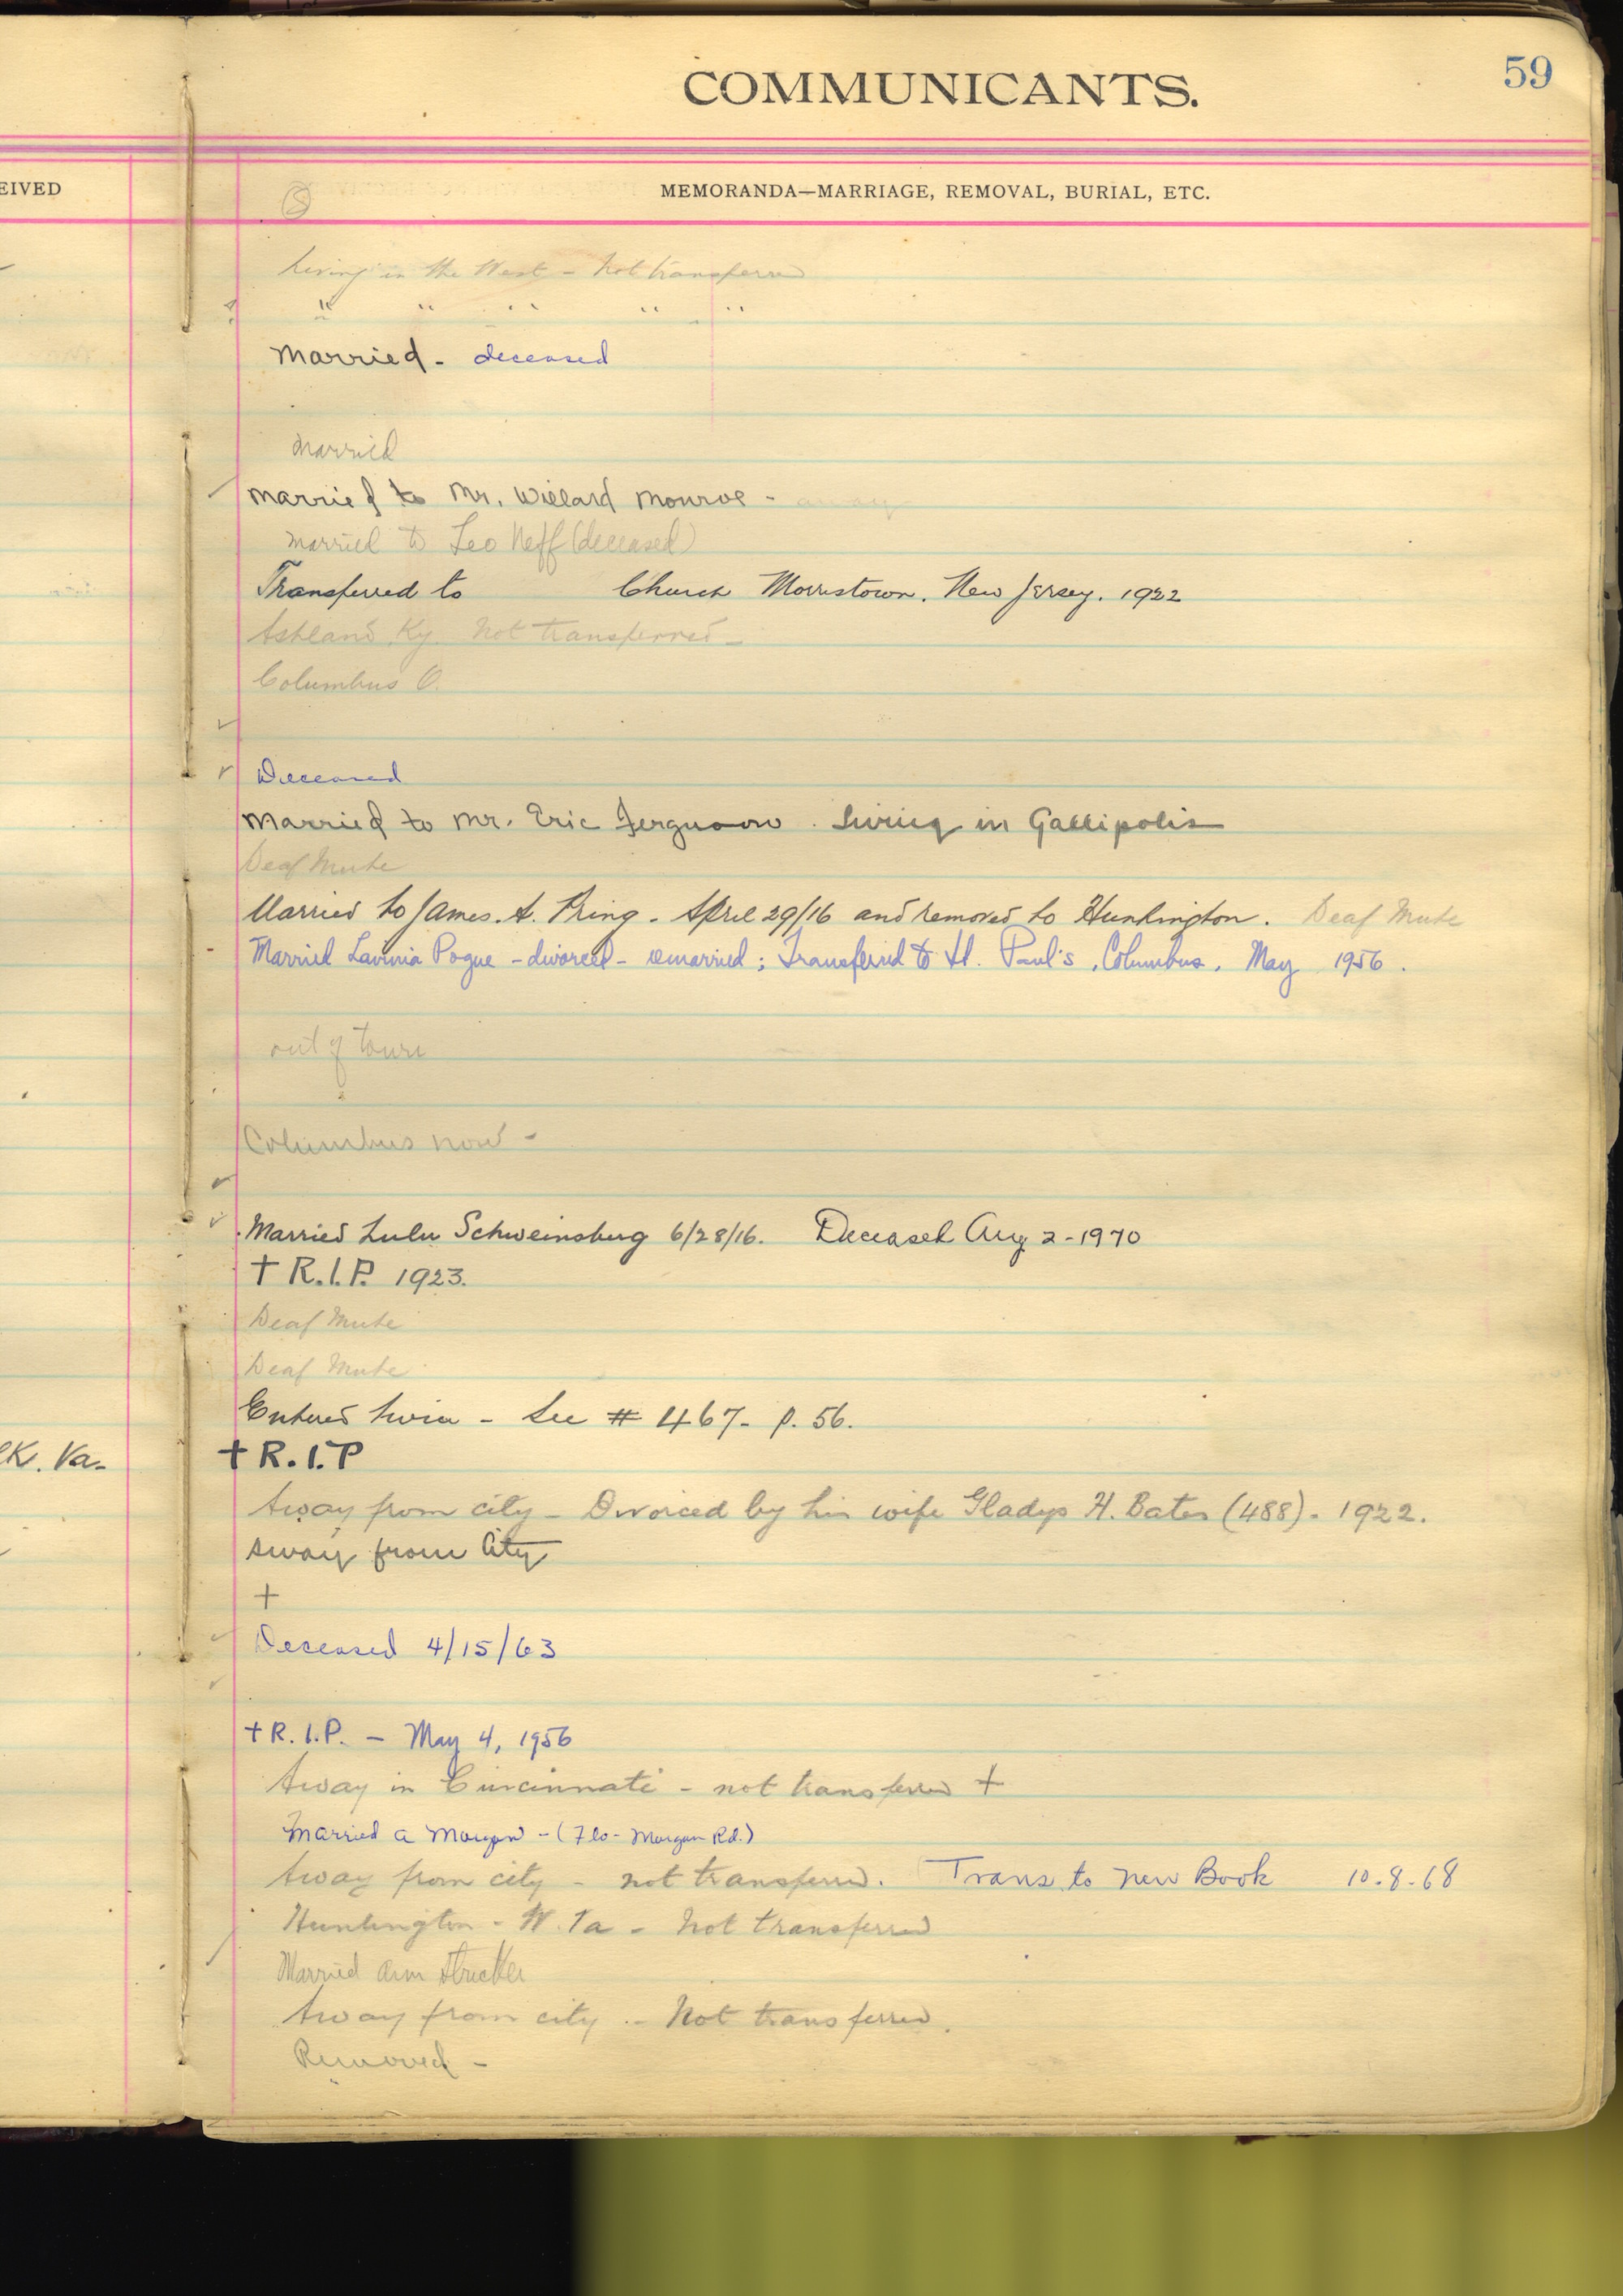 COMMUNICANTS.
59
EIVED
MEMORANDA—MARRIAGE, REMOVAL, BURIAL, ETC.
Living in the West - Not transferred
" " " " "
Married - deceased
Married
Married to Mr. Willard Monroe - away
Married to Leo Neff (deceased)
Transferred to Church Morristown, New Jersey. 1922
Ashland Ky. Not transferred -
Columbus O.
Deceased
Married to Mr. Eric Ferguson. Living in Gallipolis
Deaf Mute
Married to James. A. Pring - April 29/16 and removed to Huntington. Deaf Mute
Married Lavinia Pogue - divorced - remarried; Transferred to St. Paul's, Columbus, May 1956.
out of town
Columbus now -
Married Lulu Schweinsburg 6/28/16. Deceased Aug 2-1970
† R.I.P. 1923.
Deaf Mute
Deaf Mute
Entered twice - See # 467- p. 56.
K. Va.
† R.I.P
Away from city - Divorced by his wife Gladys H. Bates (488). 1922.
Away from City
+
Deceased 4/15/63
† R.I.P. - May 4, 1956
Away in Cincinnati - not transferred +
Married a Morgan - (Flo- Morgan Rd.)
Away from city - not transferred. Trans. to New Book 10-8-68
Huntington - W. Va - Not transferred
Married Stricker
Away from city - Not transferred.
Removed -